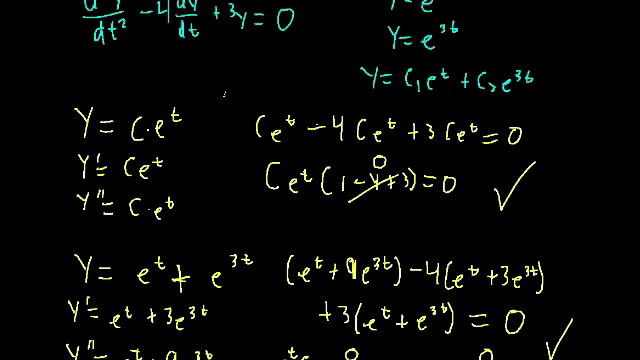 d²y/dt² - 4 dy/dt + 3y = 0
y = e
y = e^3t
y = C₁e^t + C₂e^3t
y = C·e^t
Ce^t - 4Ce^t + 3Ce^t = 0
y' = Ce^t
0
Ce^t (1 - 4 + 3) = 0 ✓
y'' = C·e^t
y = e^t + e^3t
(e^t + 9e^3t) - 4(e^t + 3e^3t)
y' = e^t + 3e^3t
+3(e^t + e^3t) = 0 ✓